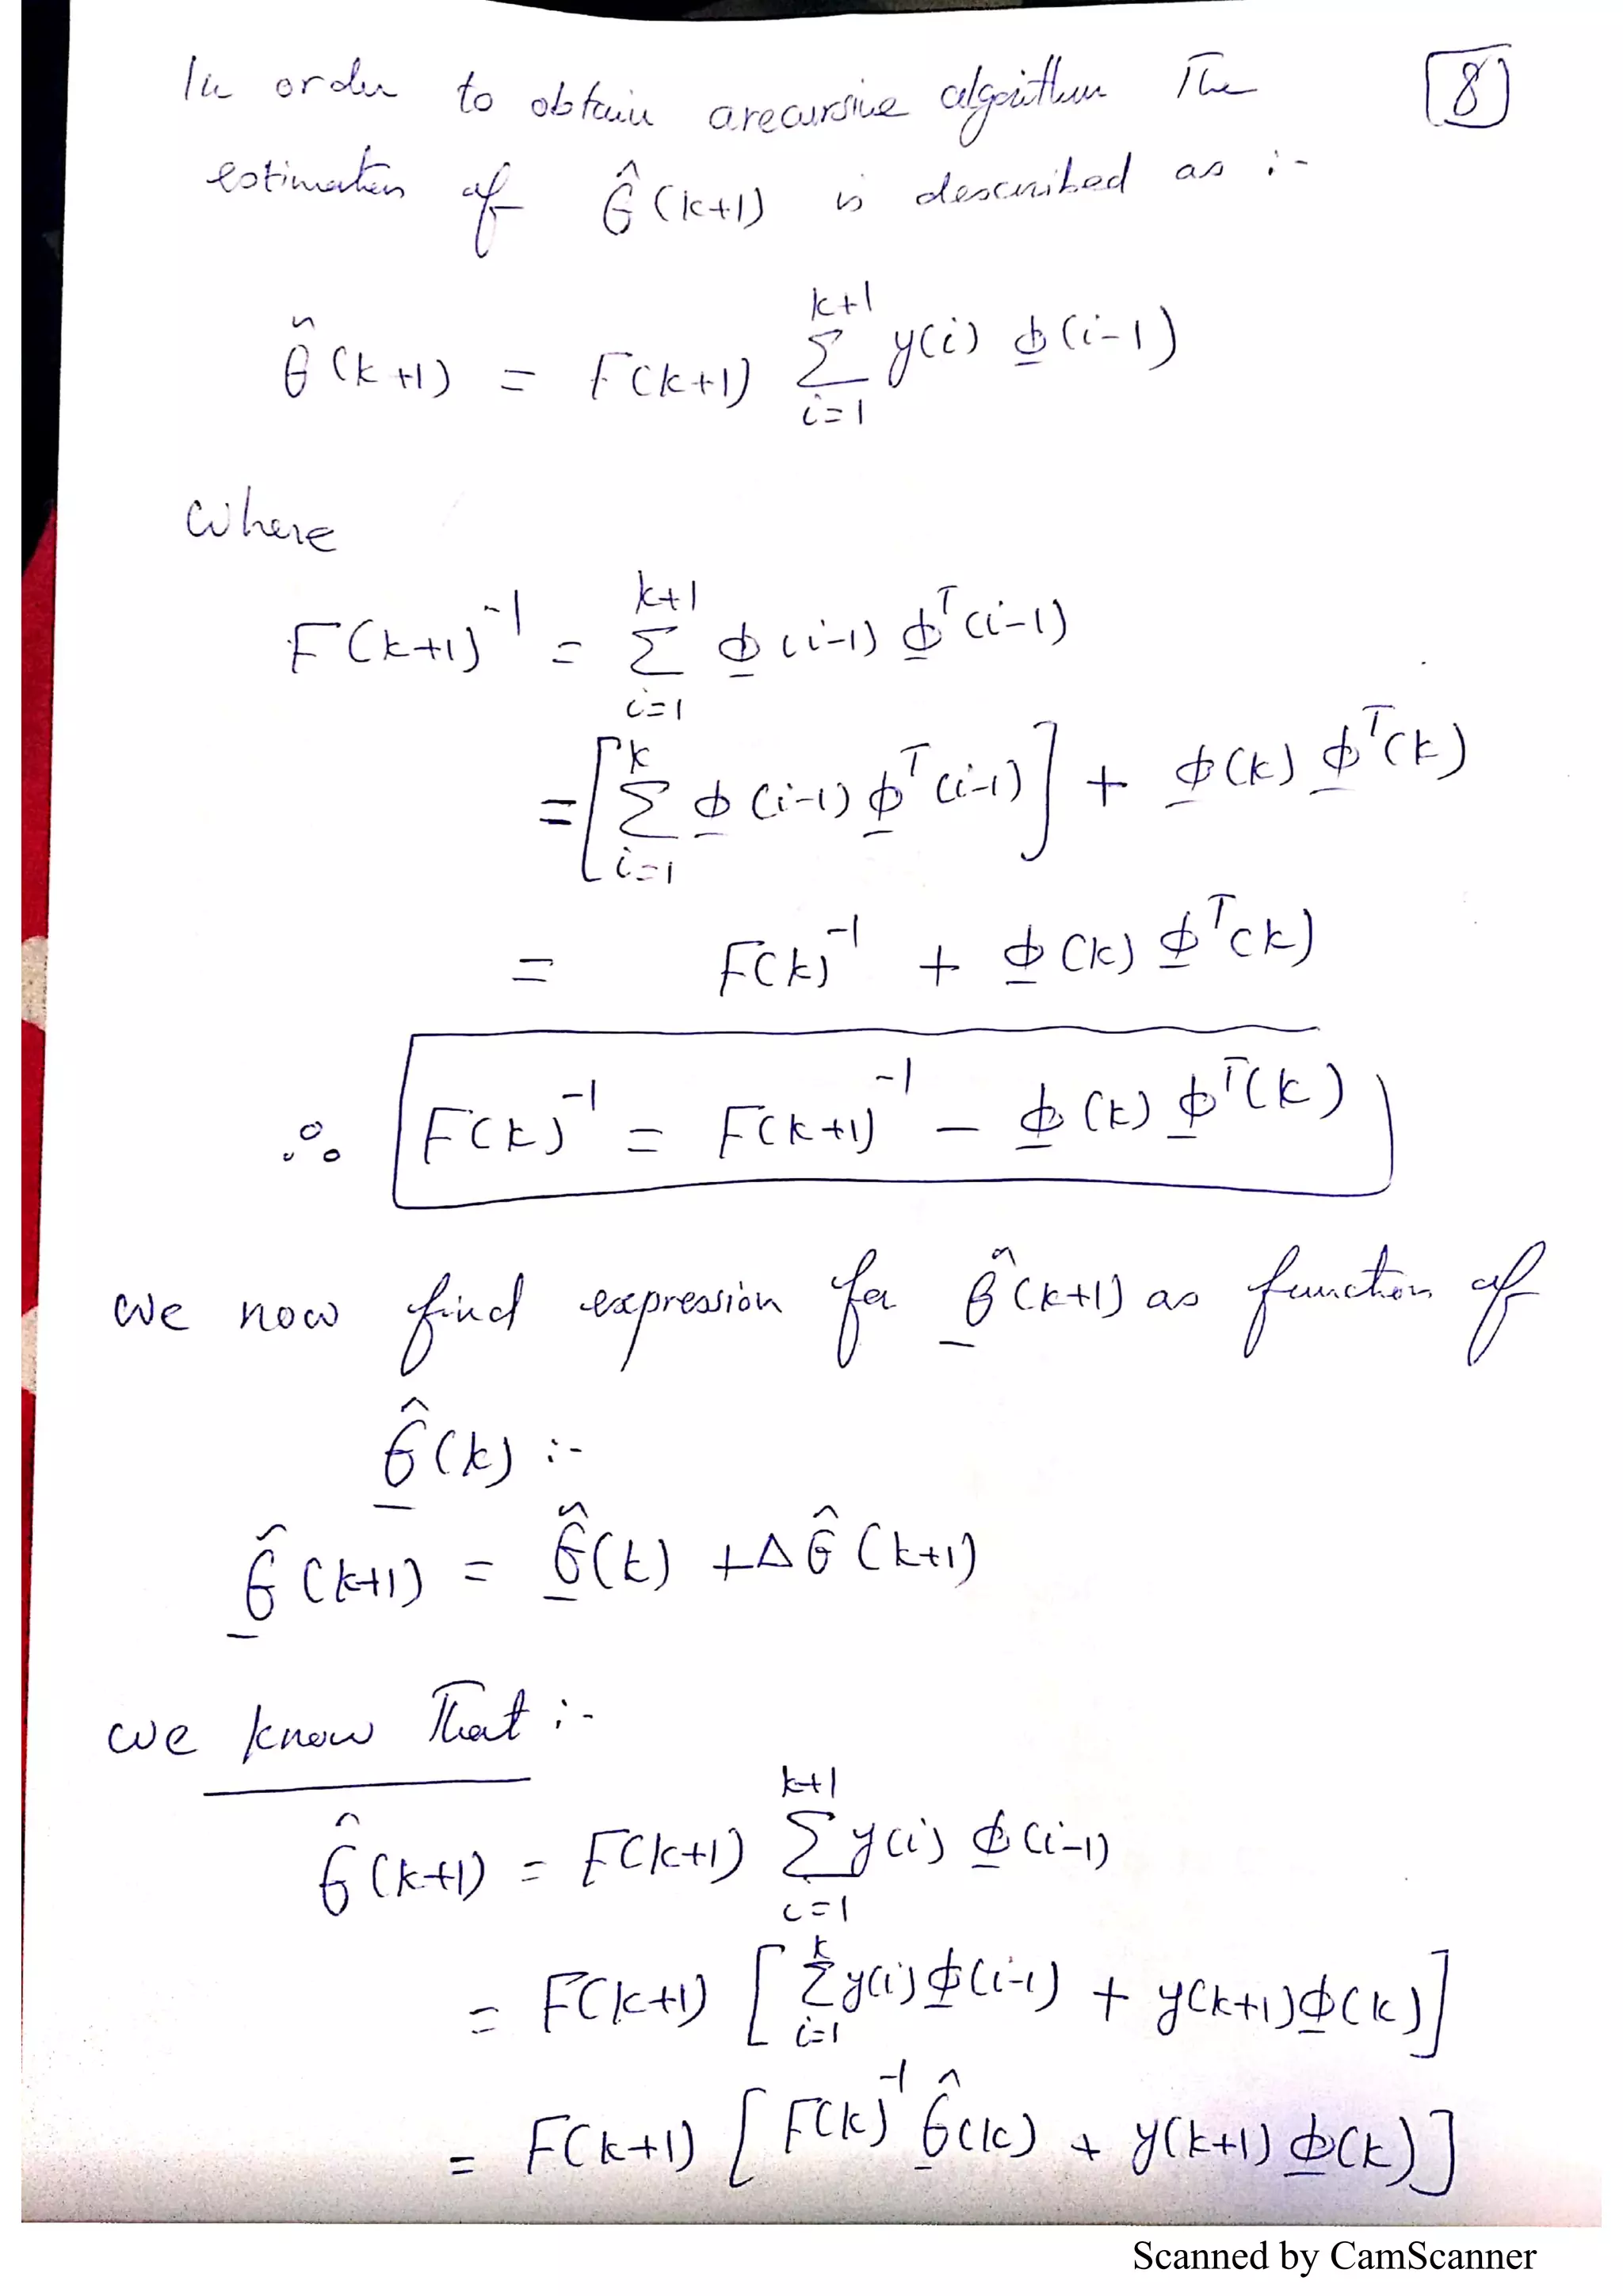 In order to obtain a recursive algorithm The [8]
estimation of θ̂(k+1) is described as :-
θ̂(k+1) = F(k+1) Σ_{i=1}^{k+1} y(i) ϕ(i-1)
where
F(k+1)^{-1} = Σ_{i=1}^{k+1} ϕ(i-1) ϕ^T(i-1)
= [Σ_{i=1}^{k} ϕ(i-1) ϕ^T(i-1)] + ϕ(k) ϕ^T(k)
= F(k)^{-1} + ϕ(k) ϕ^T(k)
∴ F(k)^{-1} = F(k+1)^{-1} - ϕ(k) ϕ^T(k)
we now find expression for θ̂(k+1) as function of
θ̂(k) :-
θ̂(k+1) = θ̂(k) + Δθ̂(k+1)
we know That :-
θ̂(k+1) = F(k+1) Σ_{i=1}^{k+1} y(i) ϕ(i-1)
= F(k+1) [Σ_{i=1}^{k} y(i) ϕ(i-1) + y(k+1) ϕ(k)]
= F(k+1) [F(k)^{-1} θ̂(k) + y(k+1) ϕ(k)]
Scanned by CamScanner